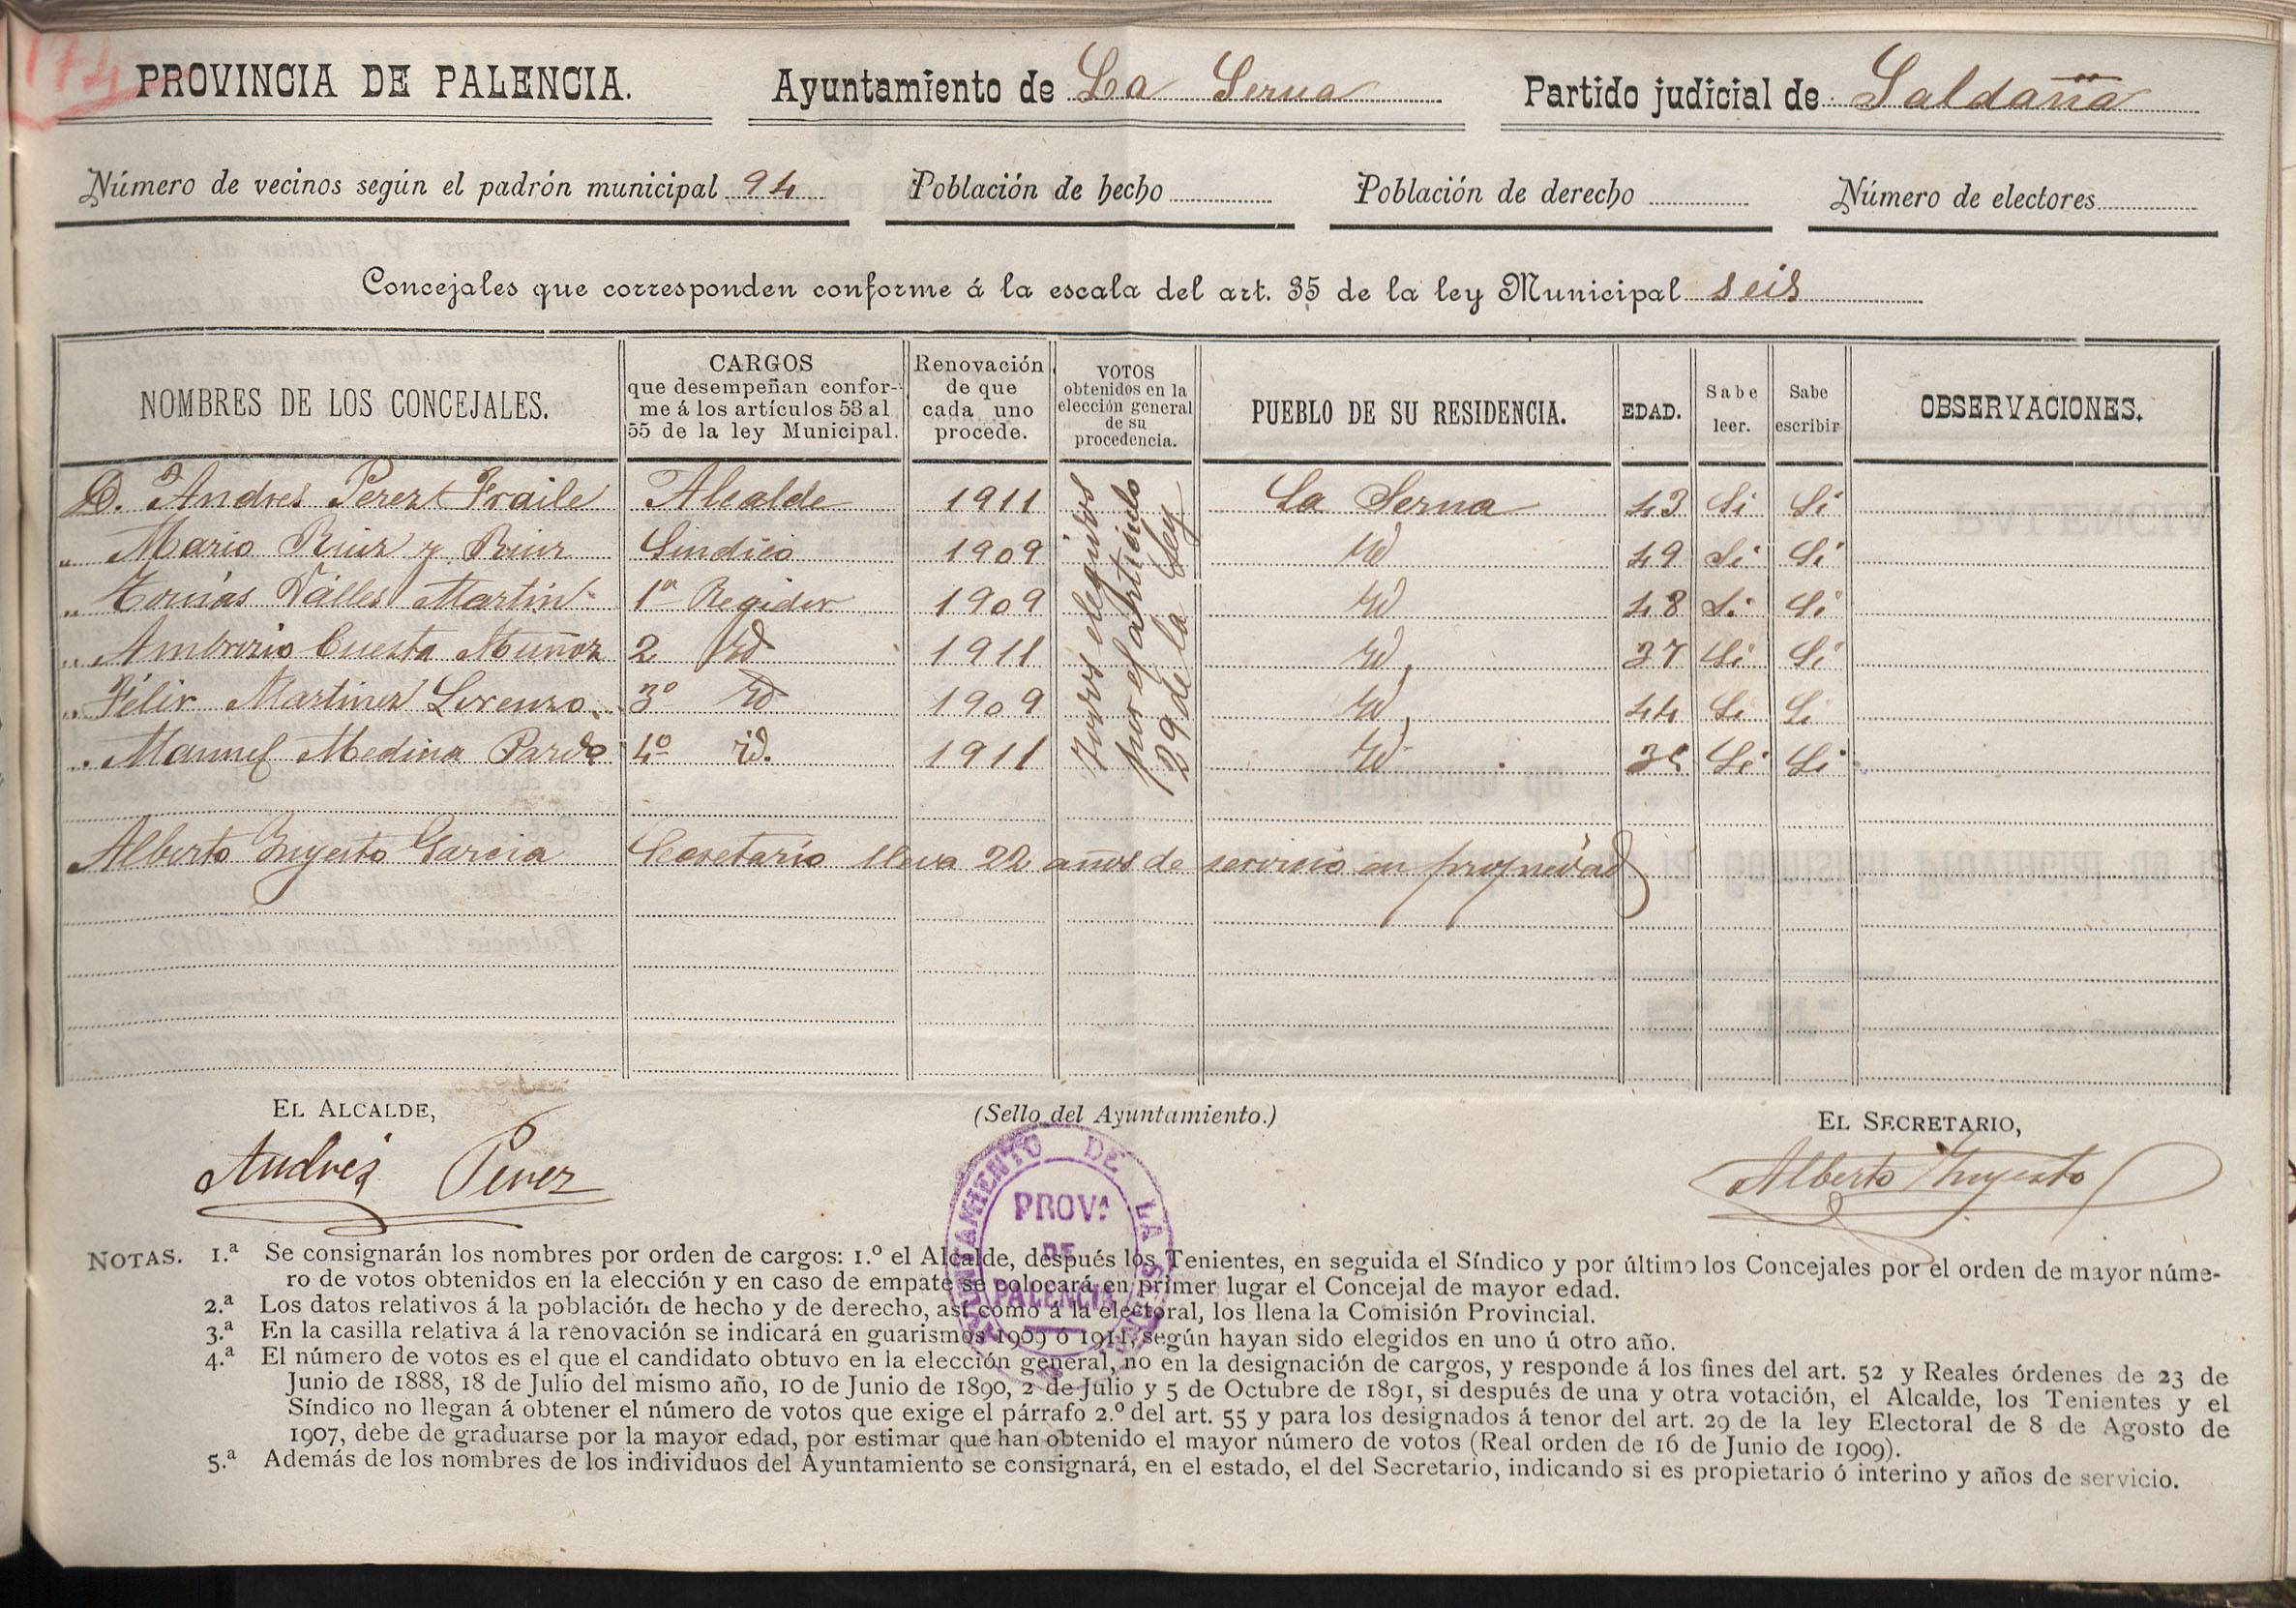 174
PROVINCIA DE PALENCIA. Ayuntamiento de La Serna Partido judicial de Saldaña
Número de vecinos según el padrón municipal 94 Población de hecho Población de derecho Número de electores
Concejales que corresponden conforme á la escala del art. 35 de la ley Municipal seis
NOMBRES DE LOS CONCEJALES.
CARGOS
que desempeñan confor-
me á los artículos 53 al
55 de la ley Municipal.
Renovación
de que
cada uno
procede.
VOTOS
obtenidos en la
elección general
de su
procedencia.
PUEBLO DE SU RESIDENCIA.
EDAD.
Sabe
leer.
Sabe
escribir
OBSERVACIONES.
D. Andres Perez Fraile Alcalde 1911 La Serna 43 Si Si
„ Mario Ruiz y Ruiz Sindico 1909 id 49 Si Si
„ Tomás Válles Martín 1º Regidor 1909 id 48 Si Si
„ Ambrosio Cuesta Muñoz 2 id 1911 id 37 Si Si
„ Félix Martinez Lorenzo 3º id 1909 id 44 Si Si
„ Manuel Medina Pardo 4º id. 1911 id Si Si
elegidos
por el artículo
29 de la Ley
Alberto Inyesto Garcia Secretario lleva 22 años de servicio en propiedad
EL ALCALDE,
Andrés Perez
(Sello del Ayuntamiento.)
AYUNTAMIENTO DE LA SERNA
PROVA
DE
PALENCIA
EL SECRETARIO,
Alberto Inyesto
NOTAS. 1.ª Se consignarán los nombres por orden de cargos: 1.º el Alcalde, después los Tenientes, en seguida el Síndico y por último los Concejales por el orden de mayor núme-
ro de votos obtenidos en la elección y en caso de empate se colocará en primer lugar el Concejal de mayor edad.
2.ª Los datos relativos á la población de hecho y de derecho, así como á la electoral, los llena la Comisión Provincial.
3.ª En la casilla relativa á la renovación se indicará en guarismos 1909 ó 1911, según hayan sido elegidos en uno ú otro año.
4.ª El número de votos es el que el candidato obtuvo en la elección general, no en la designación de cargos, y responde á los fines del art. 52 y Reales órdenes de 23 de
Junio de 1888, 18 de Julio del mismo año, 10 de Junio de 1890, 2 de Julio y 5 de Octubre de 1891, si después de una y otra votación, el Alcalde, los Tenientes y el
Síndico no llegan á obtener el número de votos que exige el párrafo 2.º del art. 55 y para los designados á tenor del art. 29 de la ley Electoral de 8 de Agosto de
1907, debe de graduarse por la mayor edad, por estimar que han obtenido el mayor número de votos (Real orden de 16 de Junio de 1909).
5.ª Además de los nombres de los individuos del Ayuntamiento se consignará, en el estado, el del Secretario, indicando si es propietario ó interino y años de servicio.